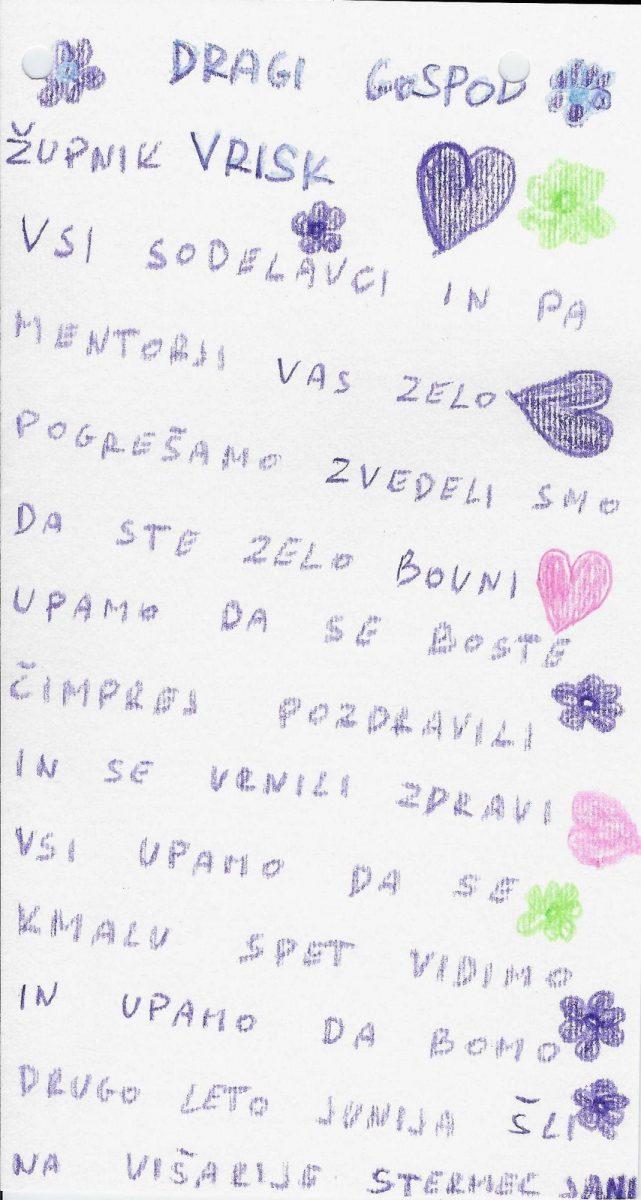 DRAGI GOSPOD
ŽUPNIK VRISK
VSI SODELAVCI IN PA
MENTORJI VAS ZELO
POGREŠAMO ZVEDELI SMO
DA STE ZELO BOVNI
UPAMO DA SE BOSTE
ČIMPREJ POZDRAVILI
IN SE VRNILI ZDRAVI
VSI UPAMO DA SE
KMALU SPET VIDIMO
IN UPAMO DA BOMO
DRUGO LETO JUNIJA ŠLI
NA VIŠARIJE STERMEC JANI